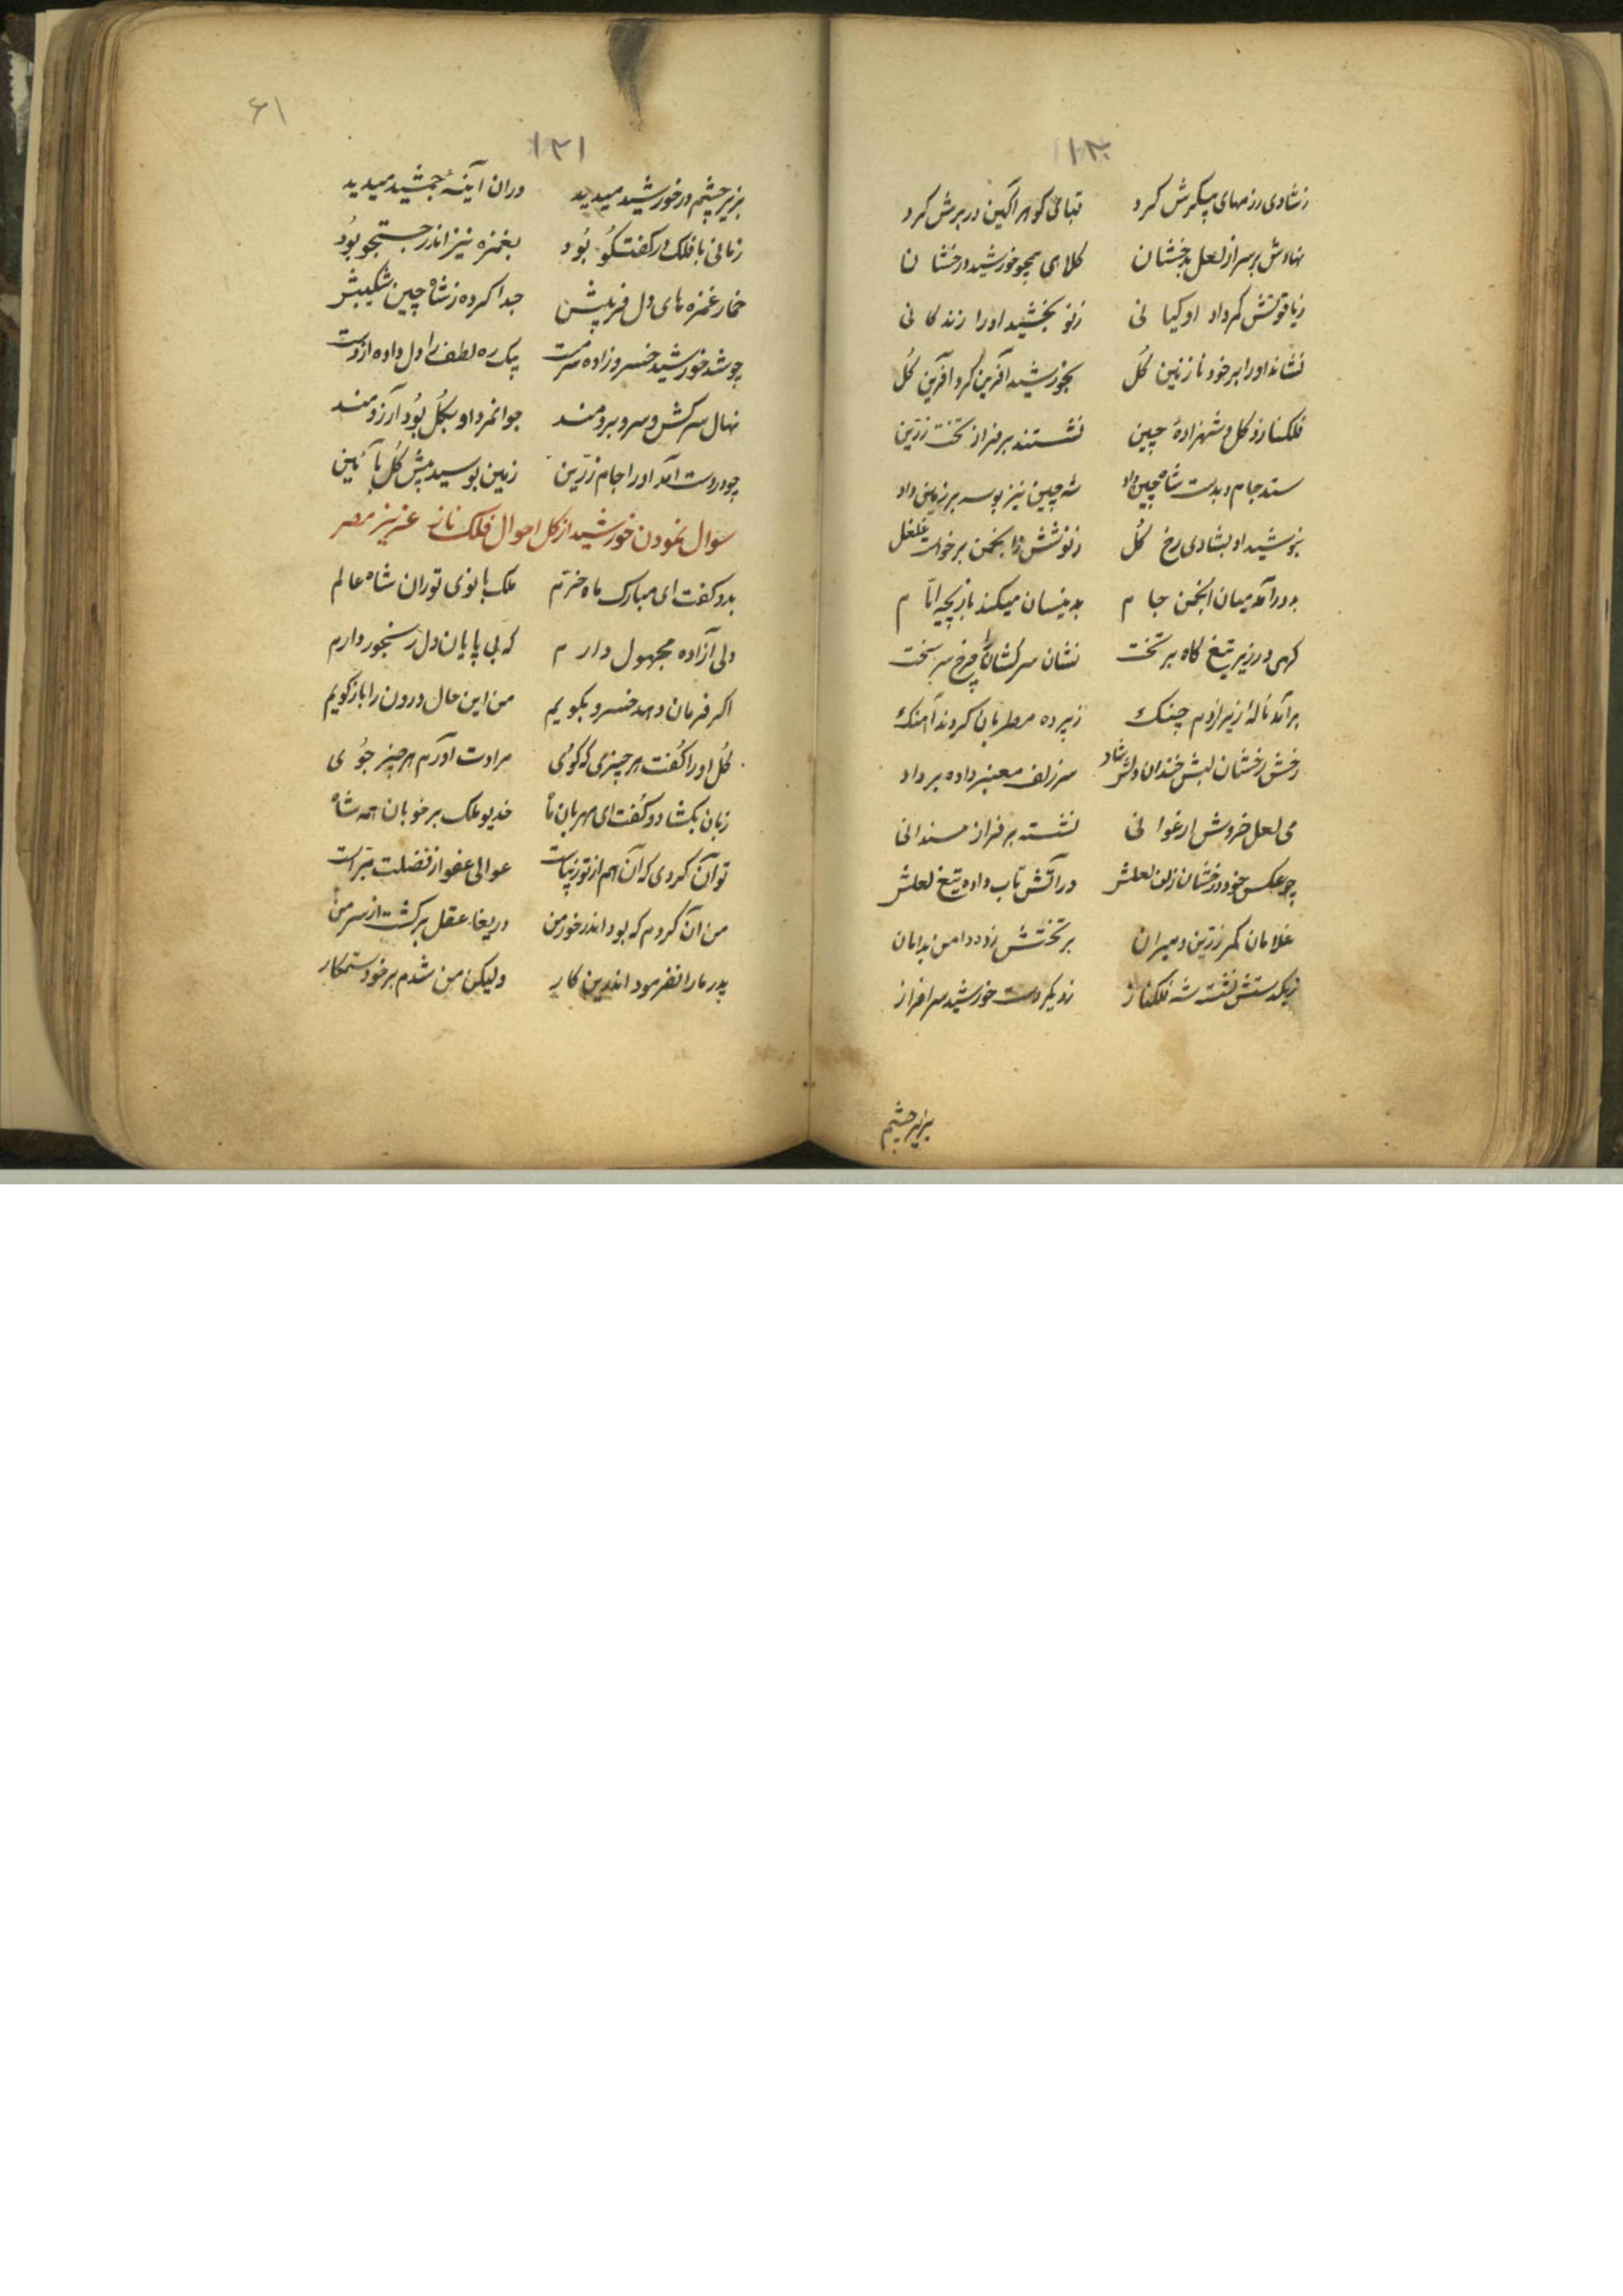 ۱۳۰
زشادی رزمهای پیکرش کرد قبائی گوهرآگین در برش کرد
نهادش بر سر از لعل بدخشان کلاهی همچو خورشید درخشان
زیاقوتش کمر داد او کیانی زنو بخشید او را زندگانی
نشاند او را بر خود نازنین گل بخورشید آفرین کرد آفرین گل
فلکناز و گل و شهزادهٔ چین نشستند بر فراز تخت زرین
ستد جام و بدست شاه چین داد شه چین نیز بوسه بر زمین داد
بنوشید او بشادی رخ گل زنوشش در انجمن برخواست غلغل
بدور آمد میان انجمن جام بدینسان میکند بازیچه ایام
گهی در زیر تیغ گاه بر تخت نشان سرکشان را چرخ سر سخت
برآمد نالهٔ زیر از دم چنگ زپرده مطربان کردند آهنگ
رخش رخشان لبش خندان دلش شاد سر زلف معنبر داده بر باد
می لعل خروش ارغوانی نشسته بر فراز مسندانی
چو عکس خود درخشان زان لعلش در آتش تاب داده تیغ لعلش
غلامان کمر زرین و میران بر تختش زده دامن بدامان
زیکدستش نشسته شه فلکناز زدیگر دست خورشید سرافراز
بزیر چشم
۶۱
۱۳۱
بزیر چشم در خورشید میدید دران آینهٔ جمشید میدید
زمانی با فلک در گفتگو بود بغمزه نیز اندر جستجو بود
خمار غمزه های دل فریبش جدا کرده زشاه چین شکیبش
چو شد خورشید خسرو زاده سرمست یک ره لطف را دل داده از دست
نهال سرکش و سرو برومند جوانمرد او بگل بود آرزومند
چو در دست آمد او را جام زرین زمین بوسید پیش گل بآئین
سوال نمودن خورشید از گل احوال فلک ناز عزیز مصر
بدو گفت ای مبارک ماه خرم ملک بانوی توران شاه عالم
دلی آزاده مجهول دارم که بی پایان دل رنجور دارم
اگر فرمان دهد خسرو بگویم من این حال درون را باز گویم
گل او را گفت هر چیزی که گوئی مرادت آورم هر چیز جوئی
زبان بکشاد و گفت ای مهربان ماه خدیو ملک بر خوبان همه شاه
تو آن کردی که آن هم از تو زیباست عوالی عفو از فضلت مبراست
من آن کردم که بود اندر خور من دریغا عقل برگشت از سر من
پدر ما را نفرمود اندرین کار ولیکن من شدم بر خود ستمکار